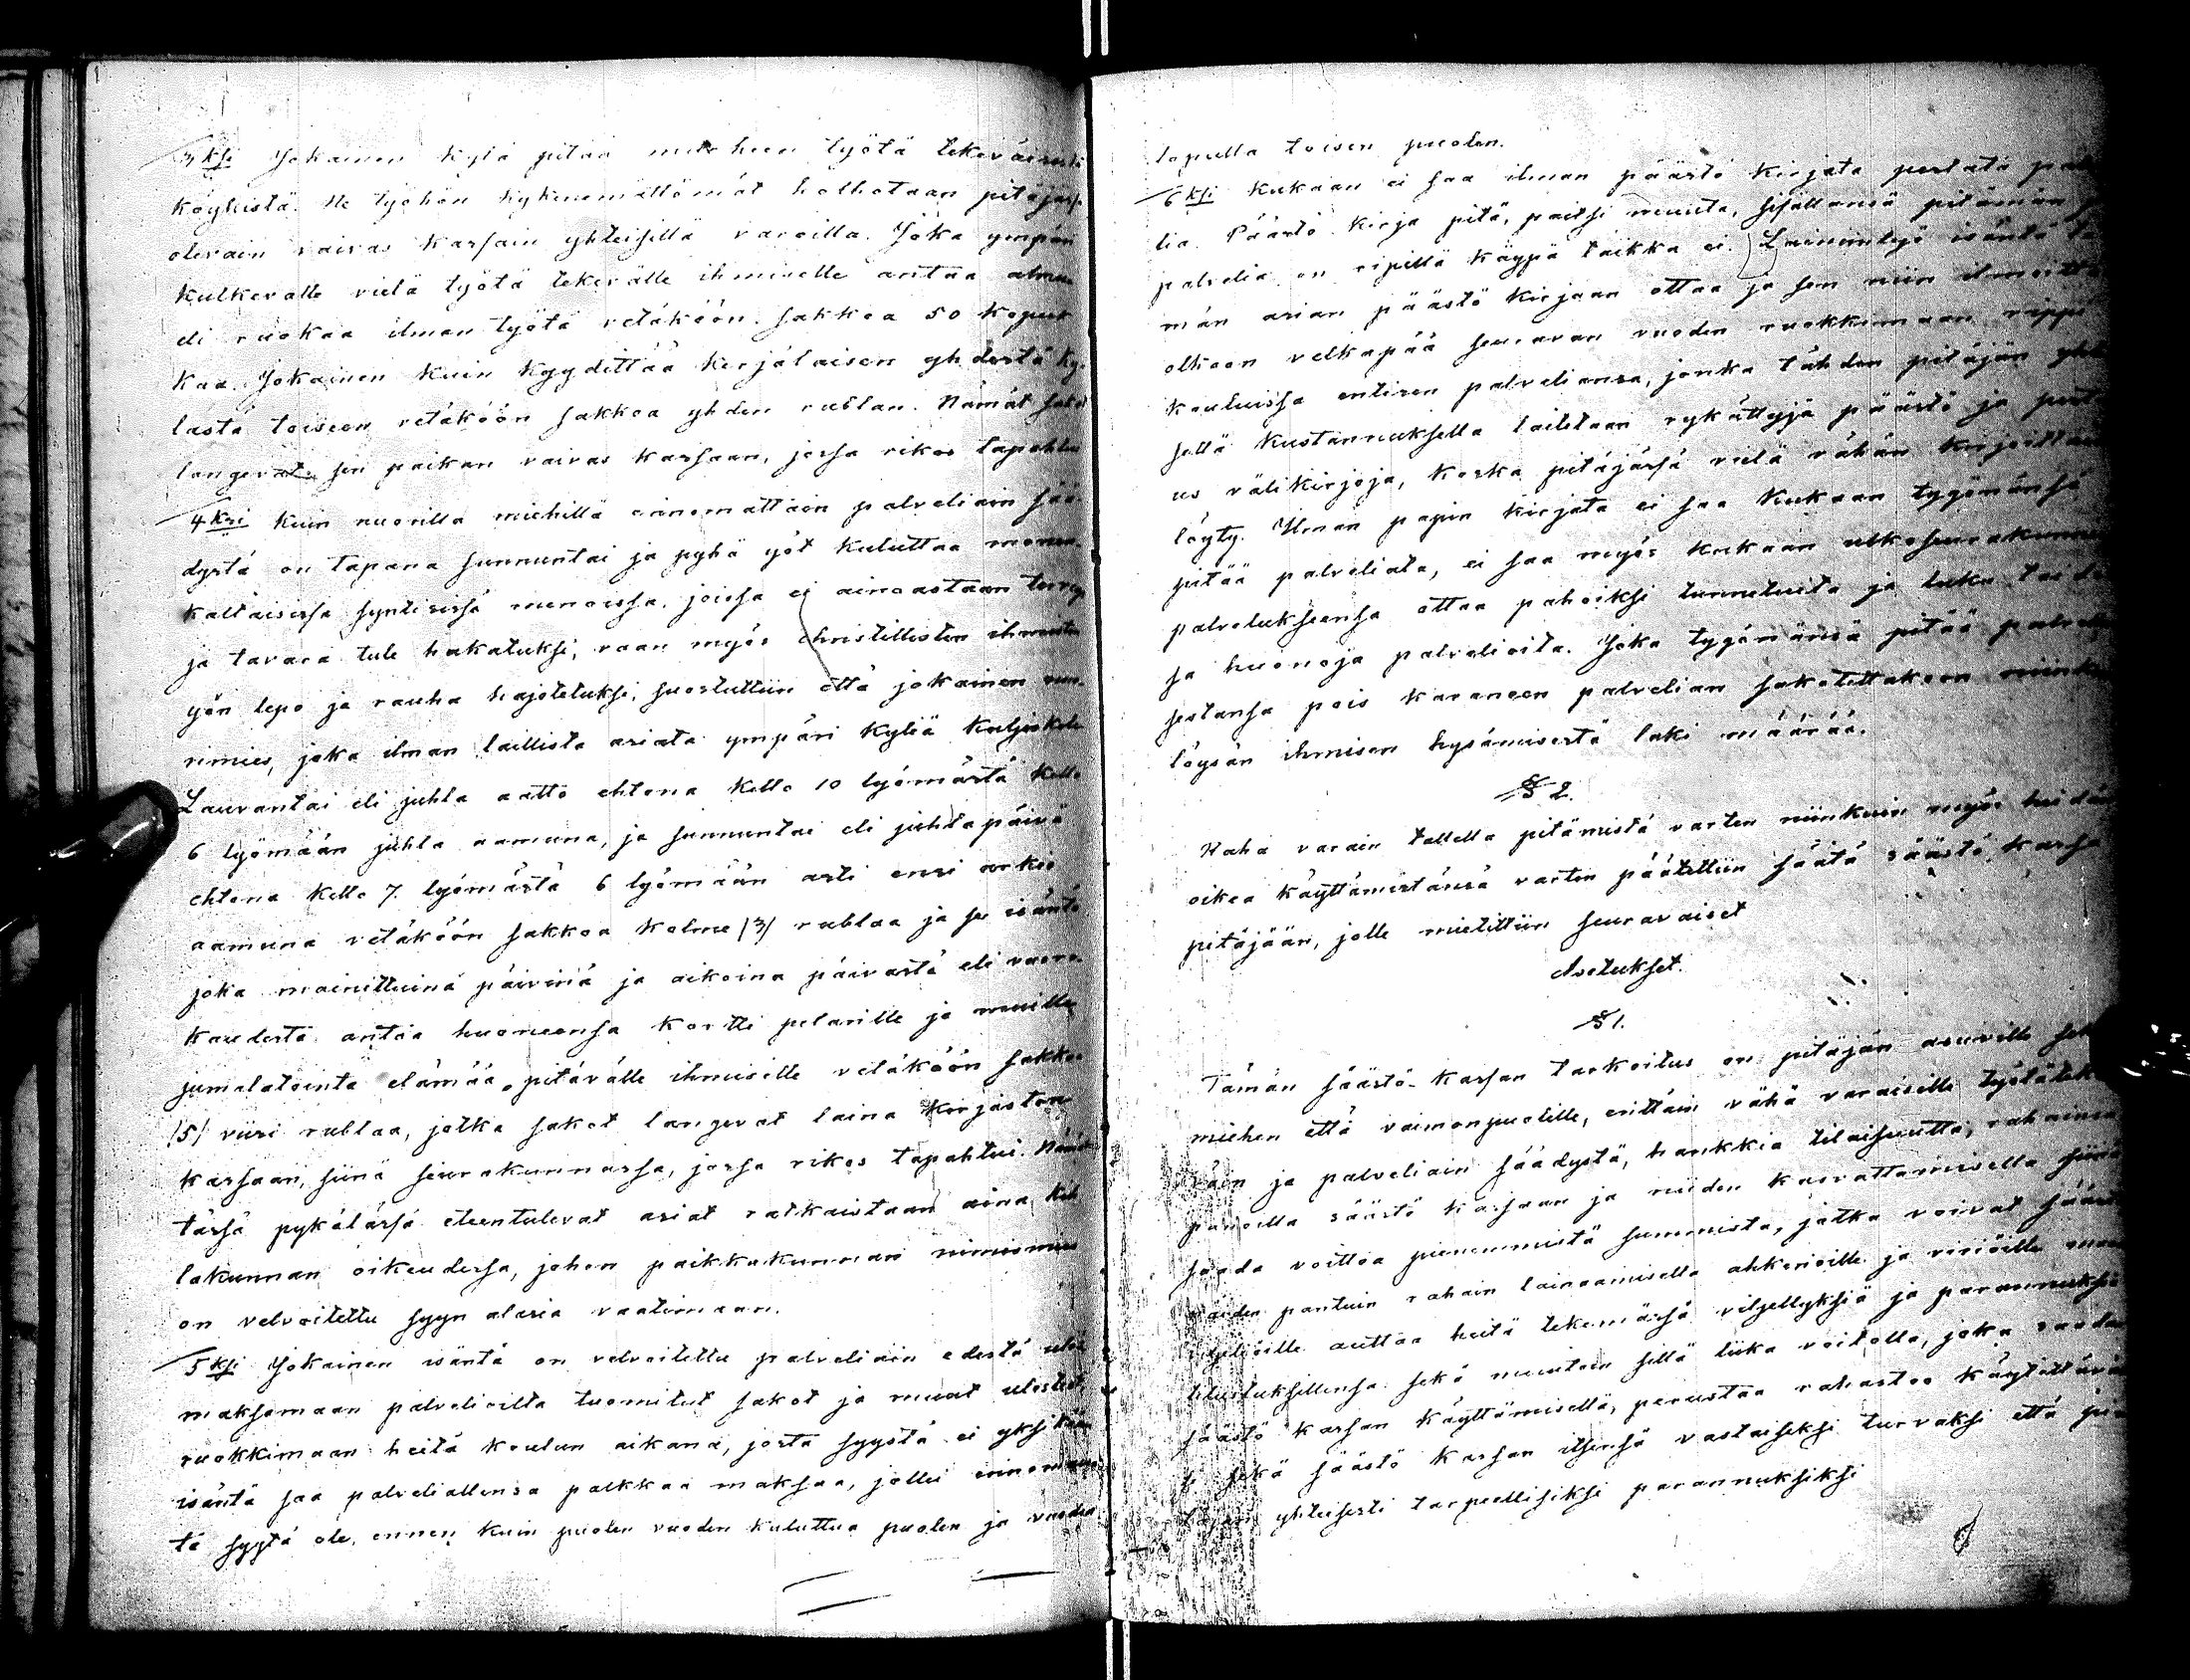 3ksi Jokainen kylä pitää murheen työtä tekeväisistä
köyhistä. Ne työhön kykenemättömät holhotaan pitäjäss
olevain vaivas kassain yhteisillä varoilla. Joka ympäri
kulkevalle vielä työtä tekevälle ihmiselle antaa almu
eli ruokaa ilman työtä vetäköön sakkoa 50 kopeek
kaa. Jokainen kuin kyydittää kerjäläisen yhdestä ky-
lästä toiseen vetäköön sakkoa yhden rublan. Nämät sakot
langevat sen paikan vaivas kassaan, jossa rikos tapahtuu
4ksi Kuin nuorilla miehillä erinomattain palveliain sää-
dystä on tapana sunnuntai ja pyhä yöt kuluttaa monen-
kaltaisissa syntisissä menoissa, joissa ei ainoastaan terveys
ja tavara tule hakatuksi, vaan myös christillisten ihmisten
yön lepo ja rauha hajotetuksi, suostuttiin että jokainen nuo-
rimies, joka ilman laillista asiata ympäri kyliä kuljeskele
Lauvantai eli juhla aatto ehtona kello 10 lyömästä kello
6 lyömään juhla aamuna, ja sunnuntai eli juhlapäivä
ehtona kello 7. lyömästä 6 lyömään asti ensi arkio
aamuna vetäköön sakkoa kolme /3/ rublaa ja se isäntä
joka mainittuina päivinä ja aikoina päivästä eli vuoro-
kaudesta antaa huoneensa kortti pelarille ja muille
jumalatointa elämää pitävälle ihmisille vetäköön sakkoa
/5/ viisi rublaa, jotka sakot langevat laina kirjaston
kassaan, siinä seurakunnassa, jossa rikos tapahtui. Nämät
tässä pykälässä eteentulevat asiat ratkaistaan aina kih
lakunnan oikeudessa, johon paikkakunnan nimismies
on velvoitettu syyn alasia vaatimaan.
5ksi Jokainen isäntä on velvoitettu palveliain edestä ulos
maksamaan palvelioilta tuomitut sakot ja muut ulosteot,
ruokkimaan heitä koulun aikana, josta syystä ei yksikään
isäntä saa palveliallensa palkkaa maksaa, jollei erinomais
ta syytä ole, ennen kuin puolen vuoden kuluttua puolen ja vuoden
lopulla toisen puolen.
6ksi Kukaan ei saa ilman päästö kirjata pestatä palve
lia. Päästö kirja pitä, paitsi muuta, sisällänsä pitämän
palvelia on ripillä käypä taikka ei. Laiminlyö isäntä tä
män asian päästö kirjaan ottaa ja sen niin ilmoitta
olkoon velkapää seuraavan vuoden ruokkimaan rippi
kouluissa entisen palveliansa, jonka tähden pitäjän yhtei
sellä kustannuksella laitetaan rykättyjä päästö ja pesta
us välikirjoja, koska pitäjässä vielä vähän kirjoittaja
löyty. Ilman papin kirjata ei saa kukaan tygönänsä
pitää palveliata, ei saa myös kukaan ulkoseurakunnis
palvelukseensa ottaa pahoiksi tunnetuita ja luku taido
ja huonoja palvelioita. Joka tygönänsä pitää palvelu
sestansa pois karaneen palvelian sakotettakoon niinkui
löysän ihmisen hysämisestä laki määrää.
§ 2.
Raha varain tallella pitämistä varten niinkuin myös heidän
oikea käyttämistänsä varten päätettiin säätä säästö kassa
pitäjään, jolle mietittiin seuraavaiset
Asetukset.
§ 1.
Tämän säästö-kassan tarkoitus on pitäjän asuville sekä
miehen että vaimonpuolille, erittäin vähä varaisille työtäteke
väin ja palveliain säädystä, hankkia tilaisuutta, rahainsa
panolla säästö kassaan ja niiden kasvattamisella siinä
saada voittoa pienimmistä summista, jotka voivat sääs
näiden pantuin rahain lainaamisella ahkerioille ja
auttaa heitä tekemässä viljellyksiä ja parannuksia
tiluksillensa sekä muutoin sillä liika voitolla, joka saadaan
säästö kassan käyttämisellä, perustaa rahastoa käytettävä
si sekä säästö kassan itsensä vastaiseksi turvaksi että pi
täjän yhteisesti tarpeellisiksi parannuksiksi